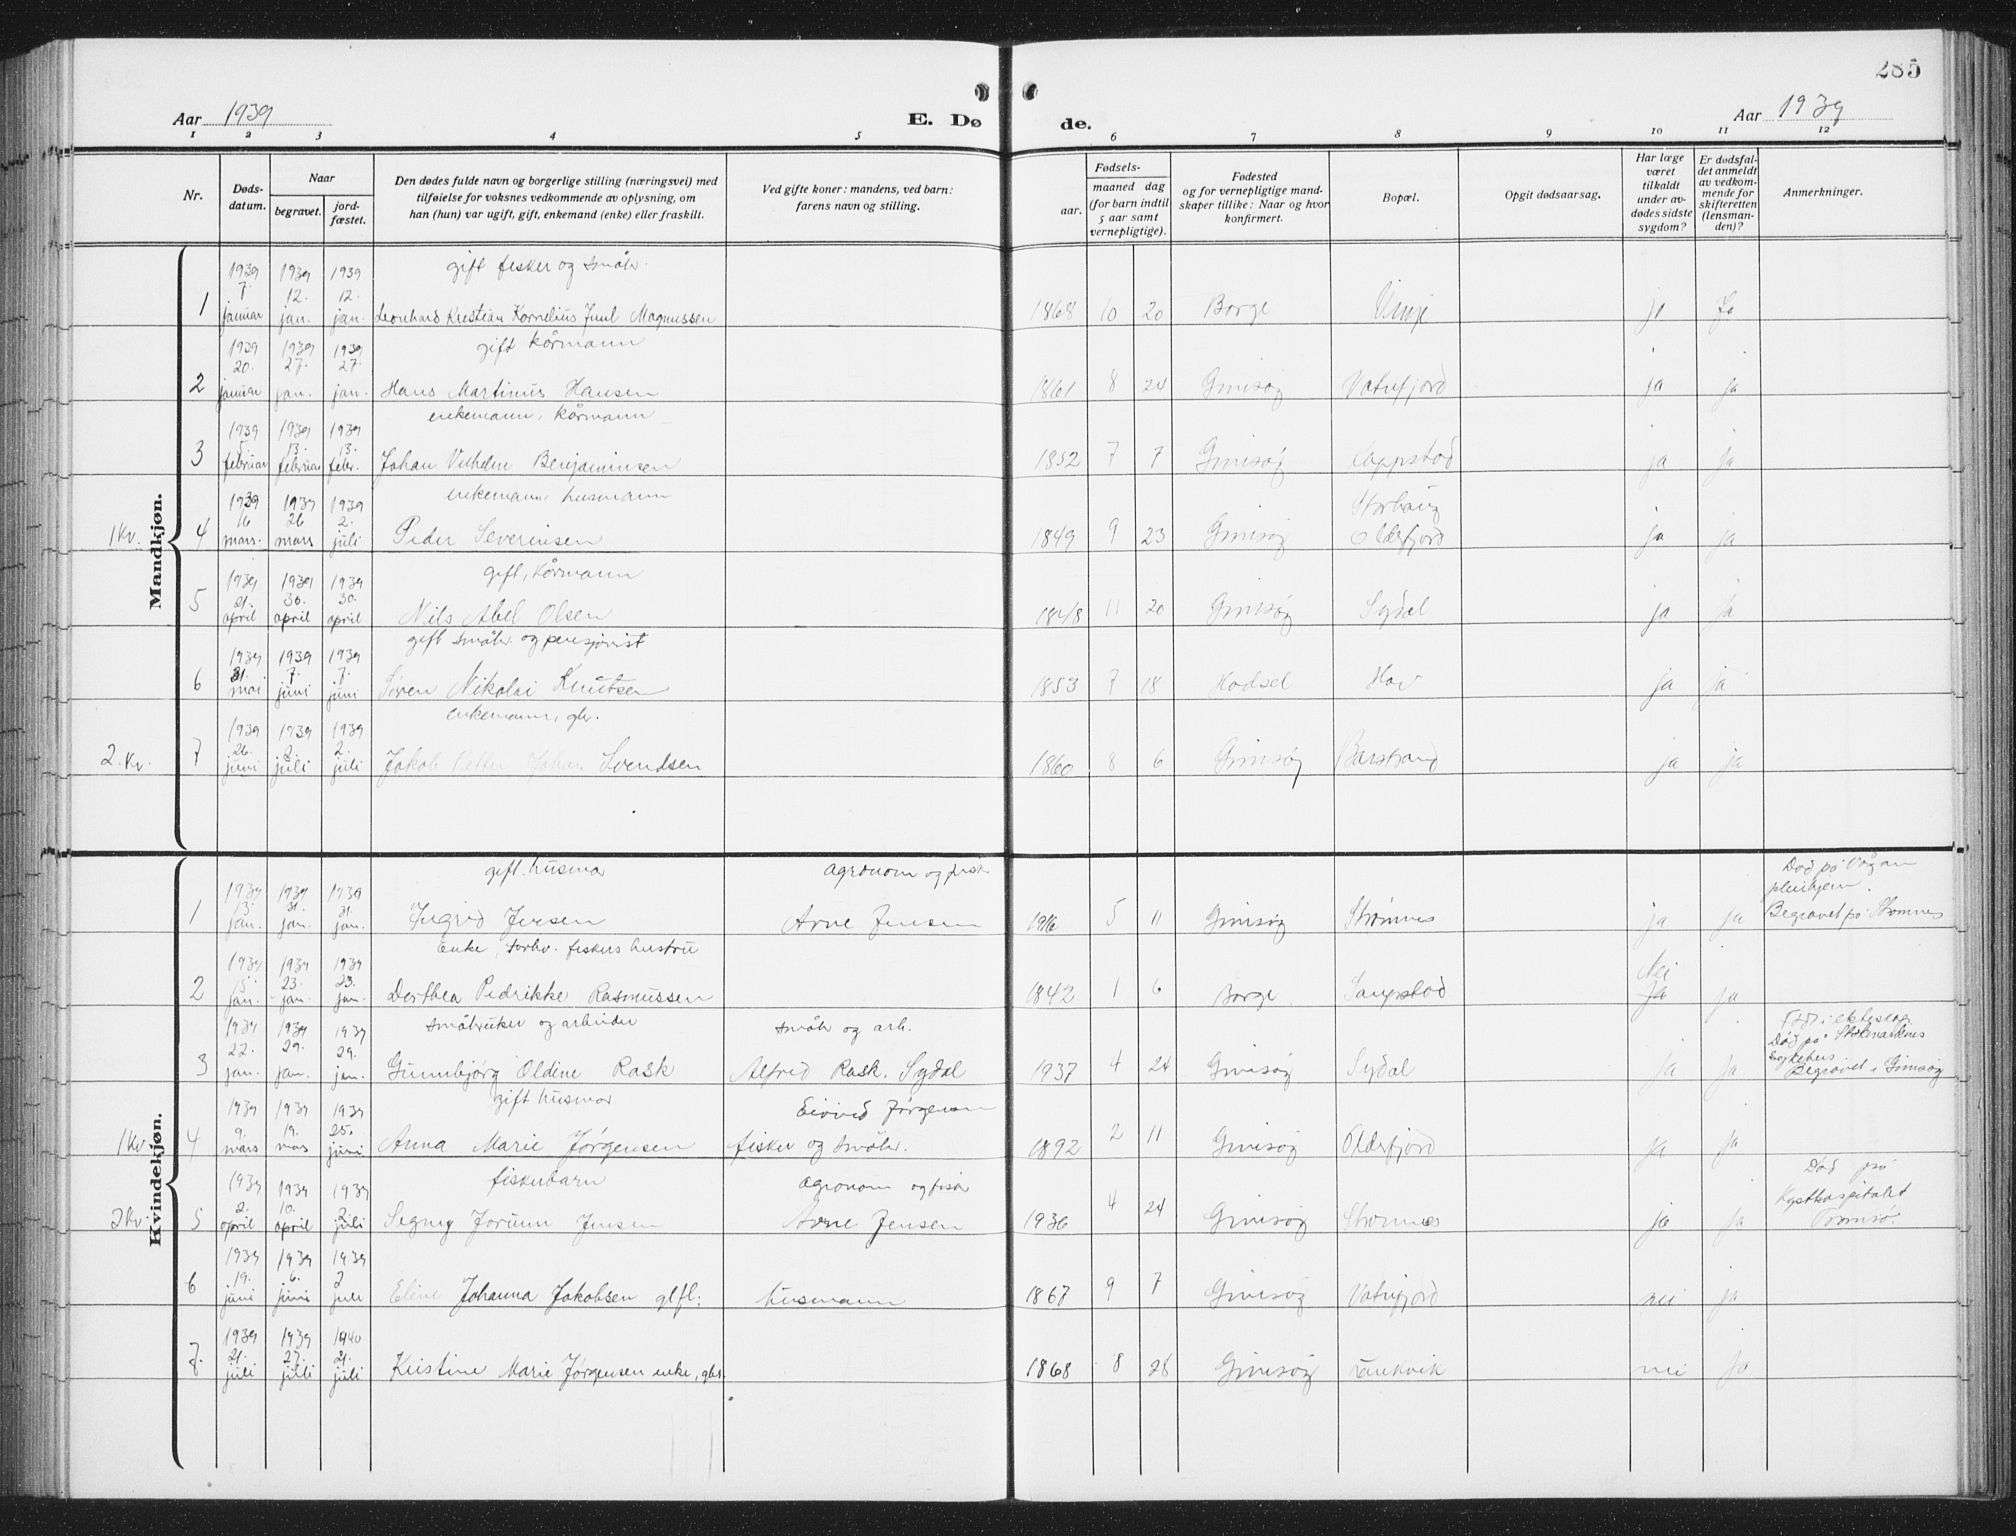 285
Aar 1939
E. Døde.
Aar 1939
1 2 3 4 5 6 7 8 9 10 11 12
Nr.
Døds-
datum.
Naar
begravet.
jord-
fæstet.
Den dødes fulde navn og borgerlige stilling (næringsvei) med
tilføielse for voksnes vedkommende av oplysning, om
han (hun) var ugift, gift, enkemand (enke) eller fraskilt.
Ved gifte koner: mandens, ved barn:
farens navn og stilling.
Fødsels-
aar.
maaned dag
(for barn indtil
5 aar samt
vernepligtige).
Fødested
og for vernepligtige mand-
skaper tillike: Naar og hvor
konfirmert.
Bopæl.
Opgit dødsaarsag.
Har læge
været
tilkaldt
under av-
dødes sidste
sygdom?
Er dødsfal-
det anmeldt
av vedkom-
mende for
skifteretten
(lensman-
den)?
Anmerkninger.
Mandkjøn.
gift fisker og småbr.
1 1939 7. januar 1939 12. jan. 1939 12. jan. Leonhard Kristian Kornelius Juul Magnussen 1868 10 20 Borge ja Ja
gift kårmann
2 1939 20. januar 1939 27. jan. 1939 27. jan. Hans Martinus Hansen 1861 8 24 Gimsøy Vatnfjord ja ja
enkemann, kårmann
3 1939 5. februar 1939 13. februar 1939 13. febr. Johan Vilhelm Benjaminsen 1852 7 7 Gimsøy Kleppstad ja ja
enkemann husmann
1 Kv. 4 1939 16 mars. 1939 26 mars 1939 2. juli Peder Severinsen 1849 9 23 Gimsøy Storhaug Olderfjord ja ja
gift, kårmann
5 1939 21. april 1939 30. april 1939 30. april Nils Abel Olsen 1848 11 20 Gimsøy Sydal ja ja
gift småbr. og pensjonist
6 1939 31. mai 1939 7. juni 1939 7. juni Søren Nikolai Knutsen 1853 7 18 Hadsel Hov ja ja
enkemann, gbr.
2. Kv. 7 1939 26. juni 1939 2. juli 1939 2. juli Jakob Petter Johan Svendsen 1860 8 6 Gimsøy Barstrand ja ja
Kvindekjøn.
gift. husmor agronom og fisk
1 1939 13. jan. 1939 31. jan. 1939 31. jan. Ingrid Jensen Arne Jensen 1916 5 11 Gimsøy Strømnes ja ja Død på Vågan pleiehjem. Begravet på Strømnes
Enke, forhv. fiskers hustru
2 1939 15. jan. 1939 23. jan. 1939 23. jan. Dorthea Pedrikke Rasmussen 1842 1 6 Borge Saupstad Nei Ja ja
småbruker og arbeider småbr og arb.
3 1939 22. jan. 1939 29. jan. 1939 29. jan. Gunnbjørg Oldine Rask Alfred Rask. Sydal 1937 4 24 Gimsøy Sydal ja ja Født i ekteskap Død på Stokmarknes sykehus Begravet i Gimsøy
gift husmor Eivind Jørgensen
1 Kv 4 1939 9. mars 1939 19. mars 1939 25. juni Anna Marie Jørgensen fisker og småbr. 1892 2 11 Gimsøy Olderfjord ja ja
fiskerbarn agronom og fisk
2 Kv. 5 1939 2. april 1939 10. april 1939 2. juli Signy Jorunn Jensen Arne Jensen 1936 4 24 Gimsøy Strømnes ja ja Død på Kysthospitalet Tromsø.
6 1939 19. juni 1939 6. juni 1939 2 juli Eline Johanna Jakobsen husmann 1867 9 7 Gimsøy Vatnfjord nei ja
7. 1939 21. juli 1939 27. juli 1940 21. juli Kristine Marie Jørgensen enke, gbr. 1868 8 28 Gimsøy nei Ja